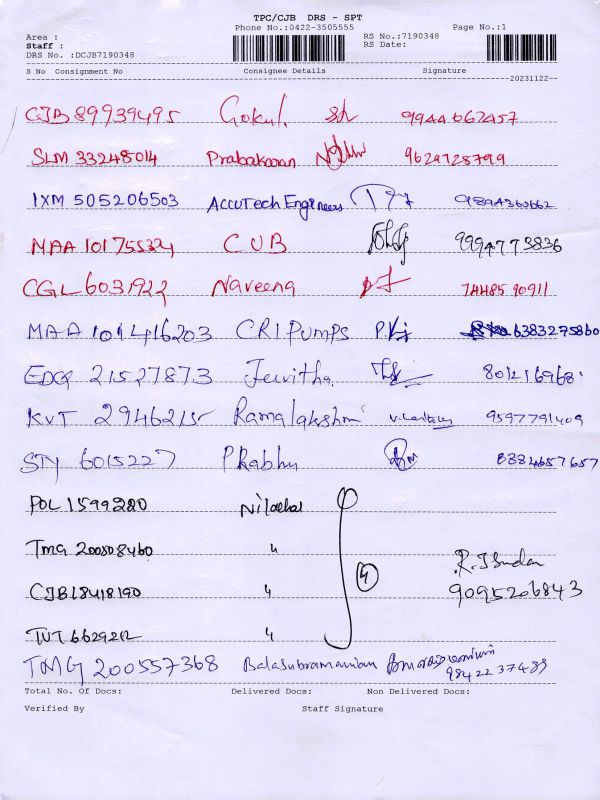 TPC/CJB DRS - SPT
Phone No.:0422-3505555
Page No.:1
Area :
RS No.:7190348
Staff :
RS Date:
DRS No. :DCJB7190348
S No Consignment No Consignee Details Signature
20231122
CJB 89939495 Gokul. 9944662457
SLM 33248014 Prabakaran 9629725799
IXM 505206503 AccuTech Engineers 9894360662
MAA 101755324 CUB 9994773836
CGL 6031922 Naveena 7448590911
MAA 101416203 CRI PUMPS 6383275860
EDQ 21527873 Jewitha 801216968
KVT 2946215 Ramalakshmi 9597791409
STY 6015227 PRabhu 8384657657
POL 1599280
TMG 200508460 "
CJB 18418190 " 4 9095206843
TUT 6629212 "
TMG 200557368 Balasubramanian 9842237489
Total No. Of Docs: Delivered Docs: Non Delivered Docs:
Verified By Staff Signature